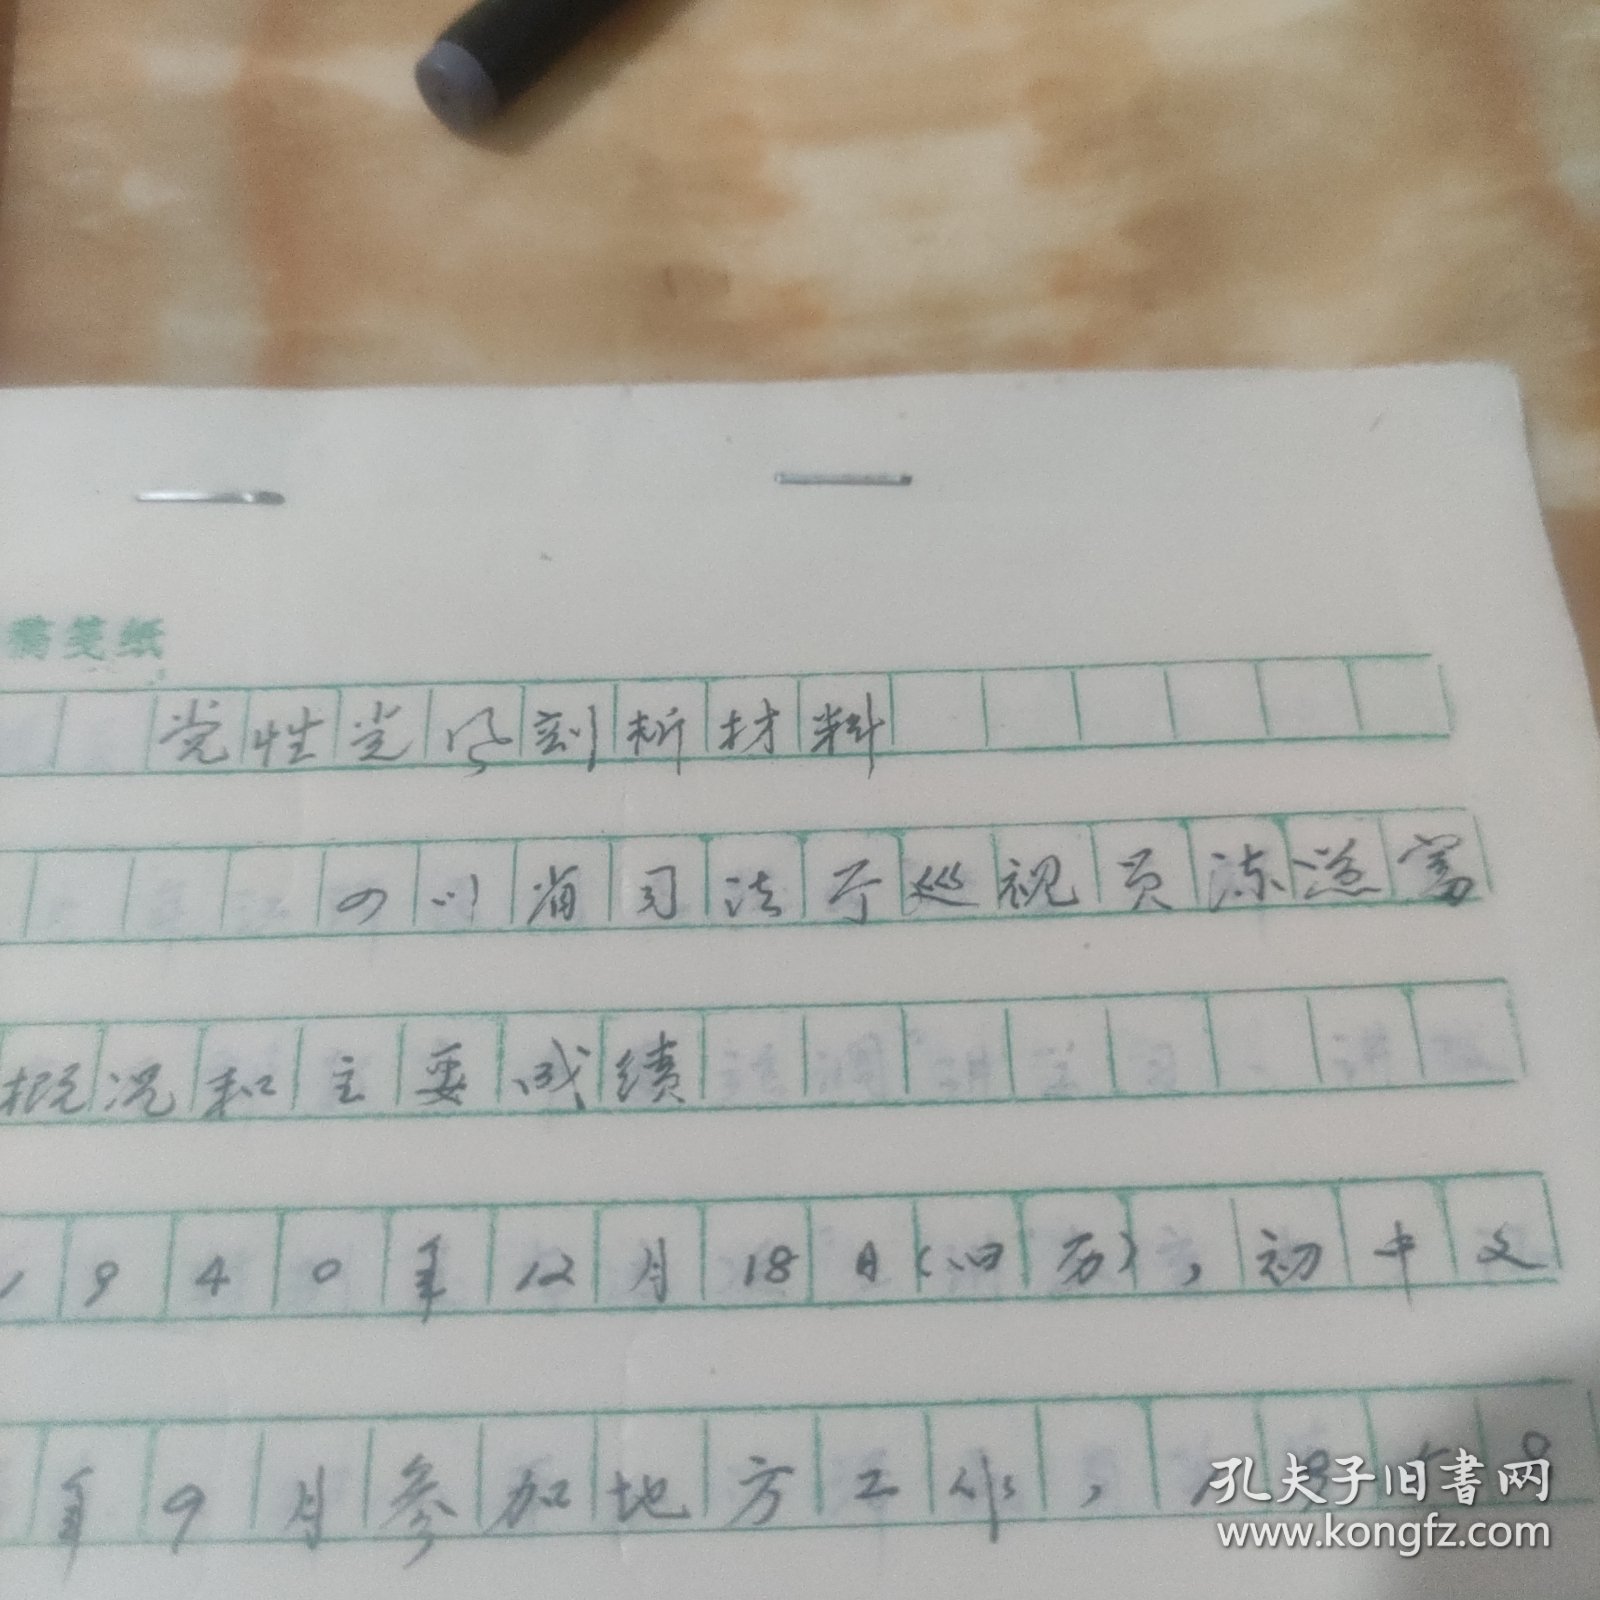 稿笺纸
党性党风剖析材料
四川省司法厅巡视员陈遂富
概况和主要成绩
1940年12月18日(旧历),初中文
年9月参加地方工作,
孔夫子旧书网
www.kongfz.com